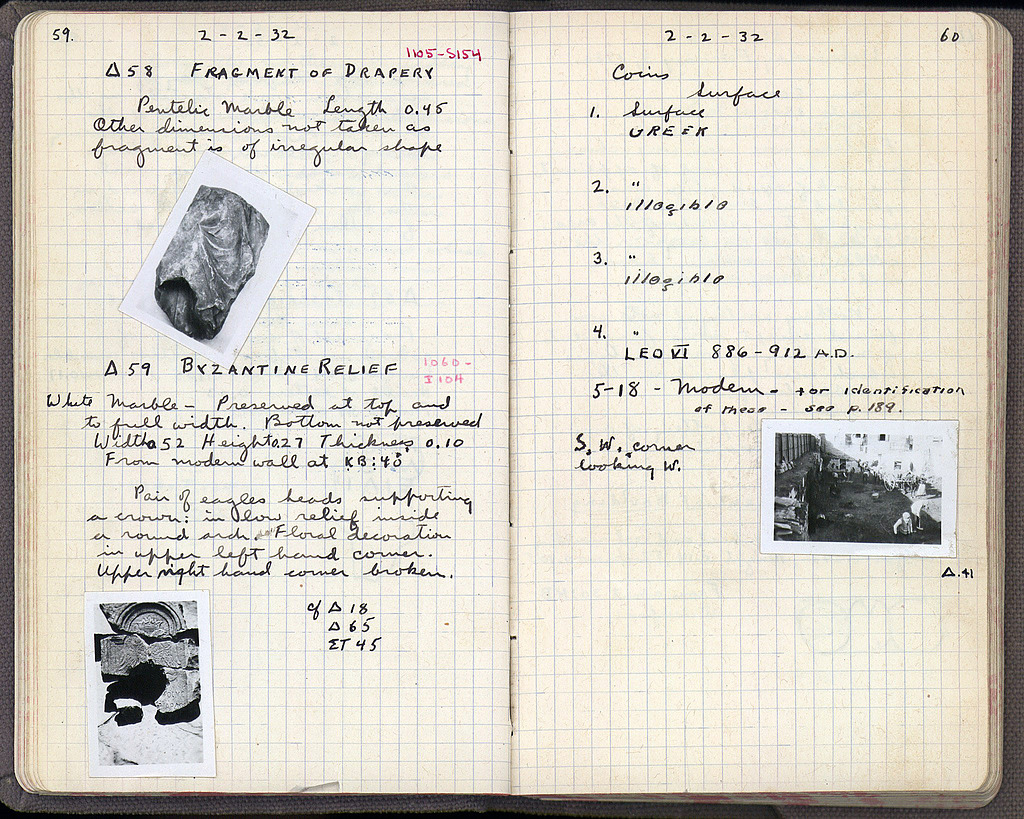 59.
2-2-32
1105-S154
Δ58 FRAGMENT OF DRAPERY
Pentelic Marble Length 0.45
Other dimensions not taken as
fragment is of irregular shape
Δ59 BYZANTINE RELIEF
1060-
I104
White Marble - Preserved at top and
to full width. Bottom not preserved
Width 0.52 Height 0.27 Thickness 0.10
From modern wall at KB:40
Pair of eagles heads supporting
a crown: in low relief inside
a round arch. Floral decoration
in upper left hand corner.
Upper right hand corner broken.
cf Δ18
Δ65
ΣΤ 45
2-2-32
60
Coins
Surface
1. Surface
GREEK
2. "
illegible
3. "
illegible
4. "
LEO VI 886-912 A.D.
5-18 - Modern - for identification
of these - see p.189.
S.W. corner
looking W.
Δ.41